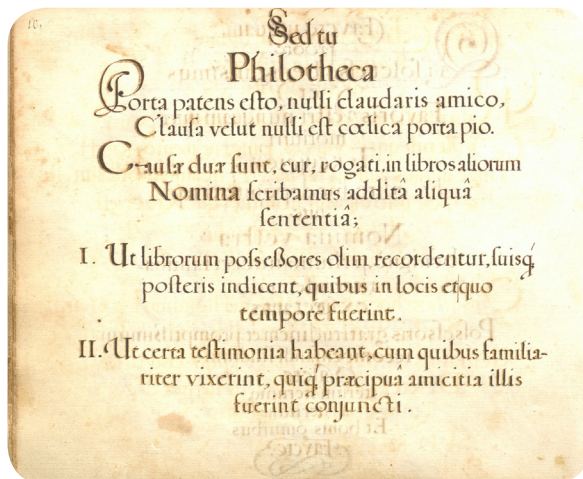 10.
Sed tu
Philotheca
Porta patens esto, nulli claudaris amico,
Clausa velut nulli est cœlica porta pio.
Causæ duæ sunt, cur, rogati, in libros aliorum
Nomina scribamus additâ aliquâ
sententiâ;
I. Ut librorum possessores olim recordentur, suisq́
posteris indicent, quibus in locis et quo
tempore fuerint.
II. Ut certa testimonia habeant, cum quibus familia-
riter vixerint, quiq́ præcipuâ amicitia illis
fuerint conjuncti.